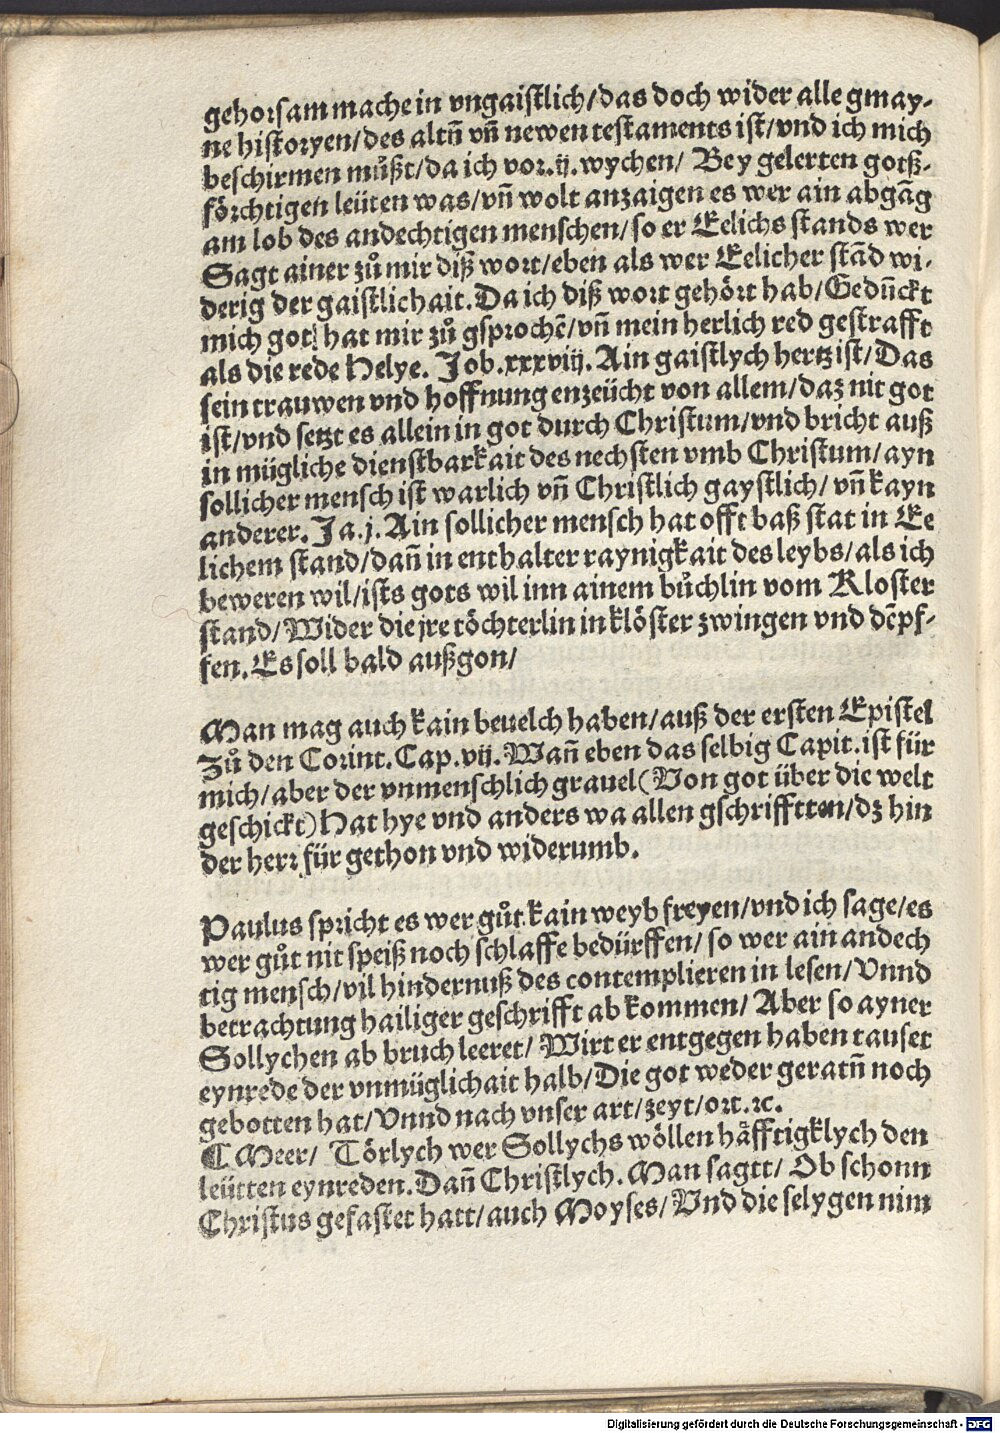 gehorsam mache in vngaistlich/das doch wider alle gmay-
ne historyen/des altn̄ vn̄ newen testaments ist/vnd ich mich
beschirmen můßt/da ich vor.ij.wychen/ Bey gelerten gotß-
förchtigen leüten was/vn̄ wolt anzaigen es wer ain abgāg
am lob des andechtigen menschen/so er Eelichs stands wer
Sagt ainer zů mir diß wort/eben als wer Eelicher stād wi-
derig der gaistlichait. Da ich diß wort gehört hab/Gedūckt
mich got hat mir zů gsprochē/vn̄ mein herlich red gestrafft
als die rede Helye. Job.xxxviij. Ain gaistlych hertz ist/Das
sein trauwen vnd hoffnung enzeücht von allem/daz nit got
ist/vnd setzt es allein in got durch Christum/vnd bricht auß
in mügliche dienstbarkait des nechsten vmb Christum/ayn
sollicher mensch ist warlich vn̄ Christlich gaystlich/ vn̄ kayn
anderer. Ja.j. Ain sollicher mensch hat offt baß stat in Ee
lichem stand/dan̄ in enthalter raynigkait des leybs/als ich
beweren wil/ists gots wil inn ainem bůchlin vom Kloster
stand/Wider die jre töchterlin in klöster zwingen vnd dēpf-
fen. Es soll bald außgon/
Man mag auch kain beuelch haben/auß der ersten Epistel
Zů den Corint.Cap.vij. Wan̄ eben das selbig Capit.ist für
mich/aber der vnmenschlich grauel(Von got über die welt
geschickt)Hat hye vnd anders wa allen gschrifften/dz hin
der herr für gethon vnd widerumb.
Paulus spricht es wer gůt kain weyb freyen/vnd ich sage/es
wer gůt nit speiß noch schlaffe bedürffen/so wer ain andech
tig mensch/vil hindernuß des contemplieren in lesen/Vnnd
betrachtung hailiger geschrifft ab kommen/ Aber so ayner
Sollychen ab bruch leeret/ Wirt er entgegen haben tauset
eynrede der vnmüglichait halb/Die got weder geratn̄ noch
gebotten hat/Vnnd nach vnser art/zeyt/ort.ꝛc.
¶ Meer/ Törlych wer Sollychs wöllen häfftigklych den
leütten eynreden. Dan̄ Christlych. Man sagtt/ Ob schonn
Christus gefastet hatt/auch Moyses/ Vnd die selygen nim
Digitalisierung gefördert durch die Deutsche Forschungsgemeinschaft - DFG